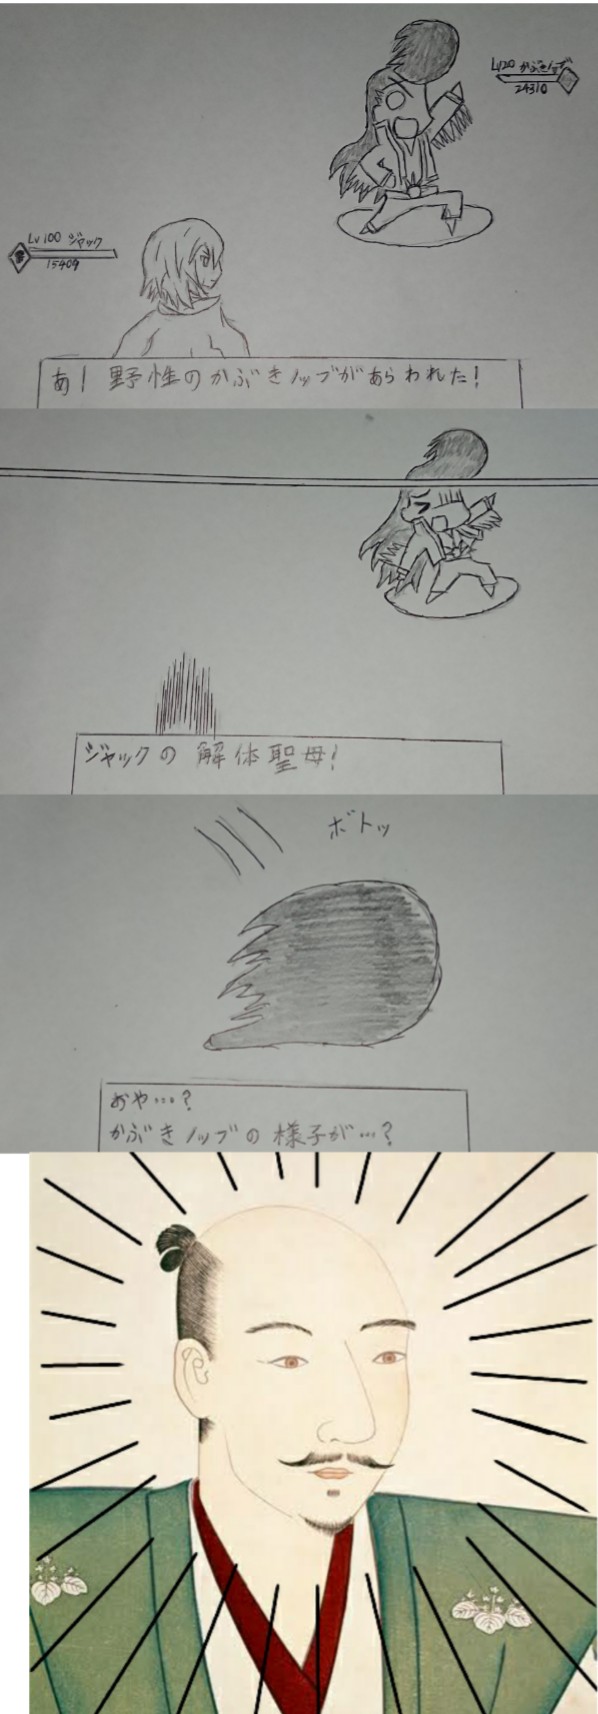 Lv20 かぶきノッブ
24310
Lv100 ジャック
15409
あ！野性のかぶきノッブがあらわれた！
ジャックの解体聖母！
ボトッ
おや…？
かぶきノッブの様子が…？